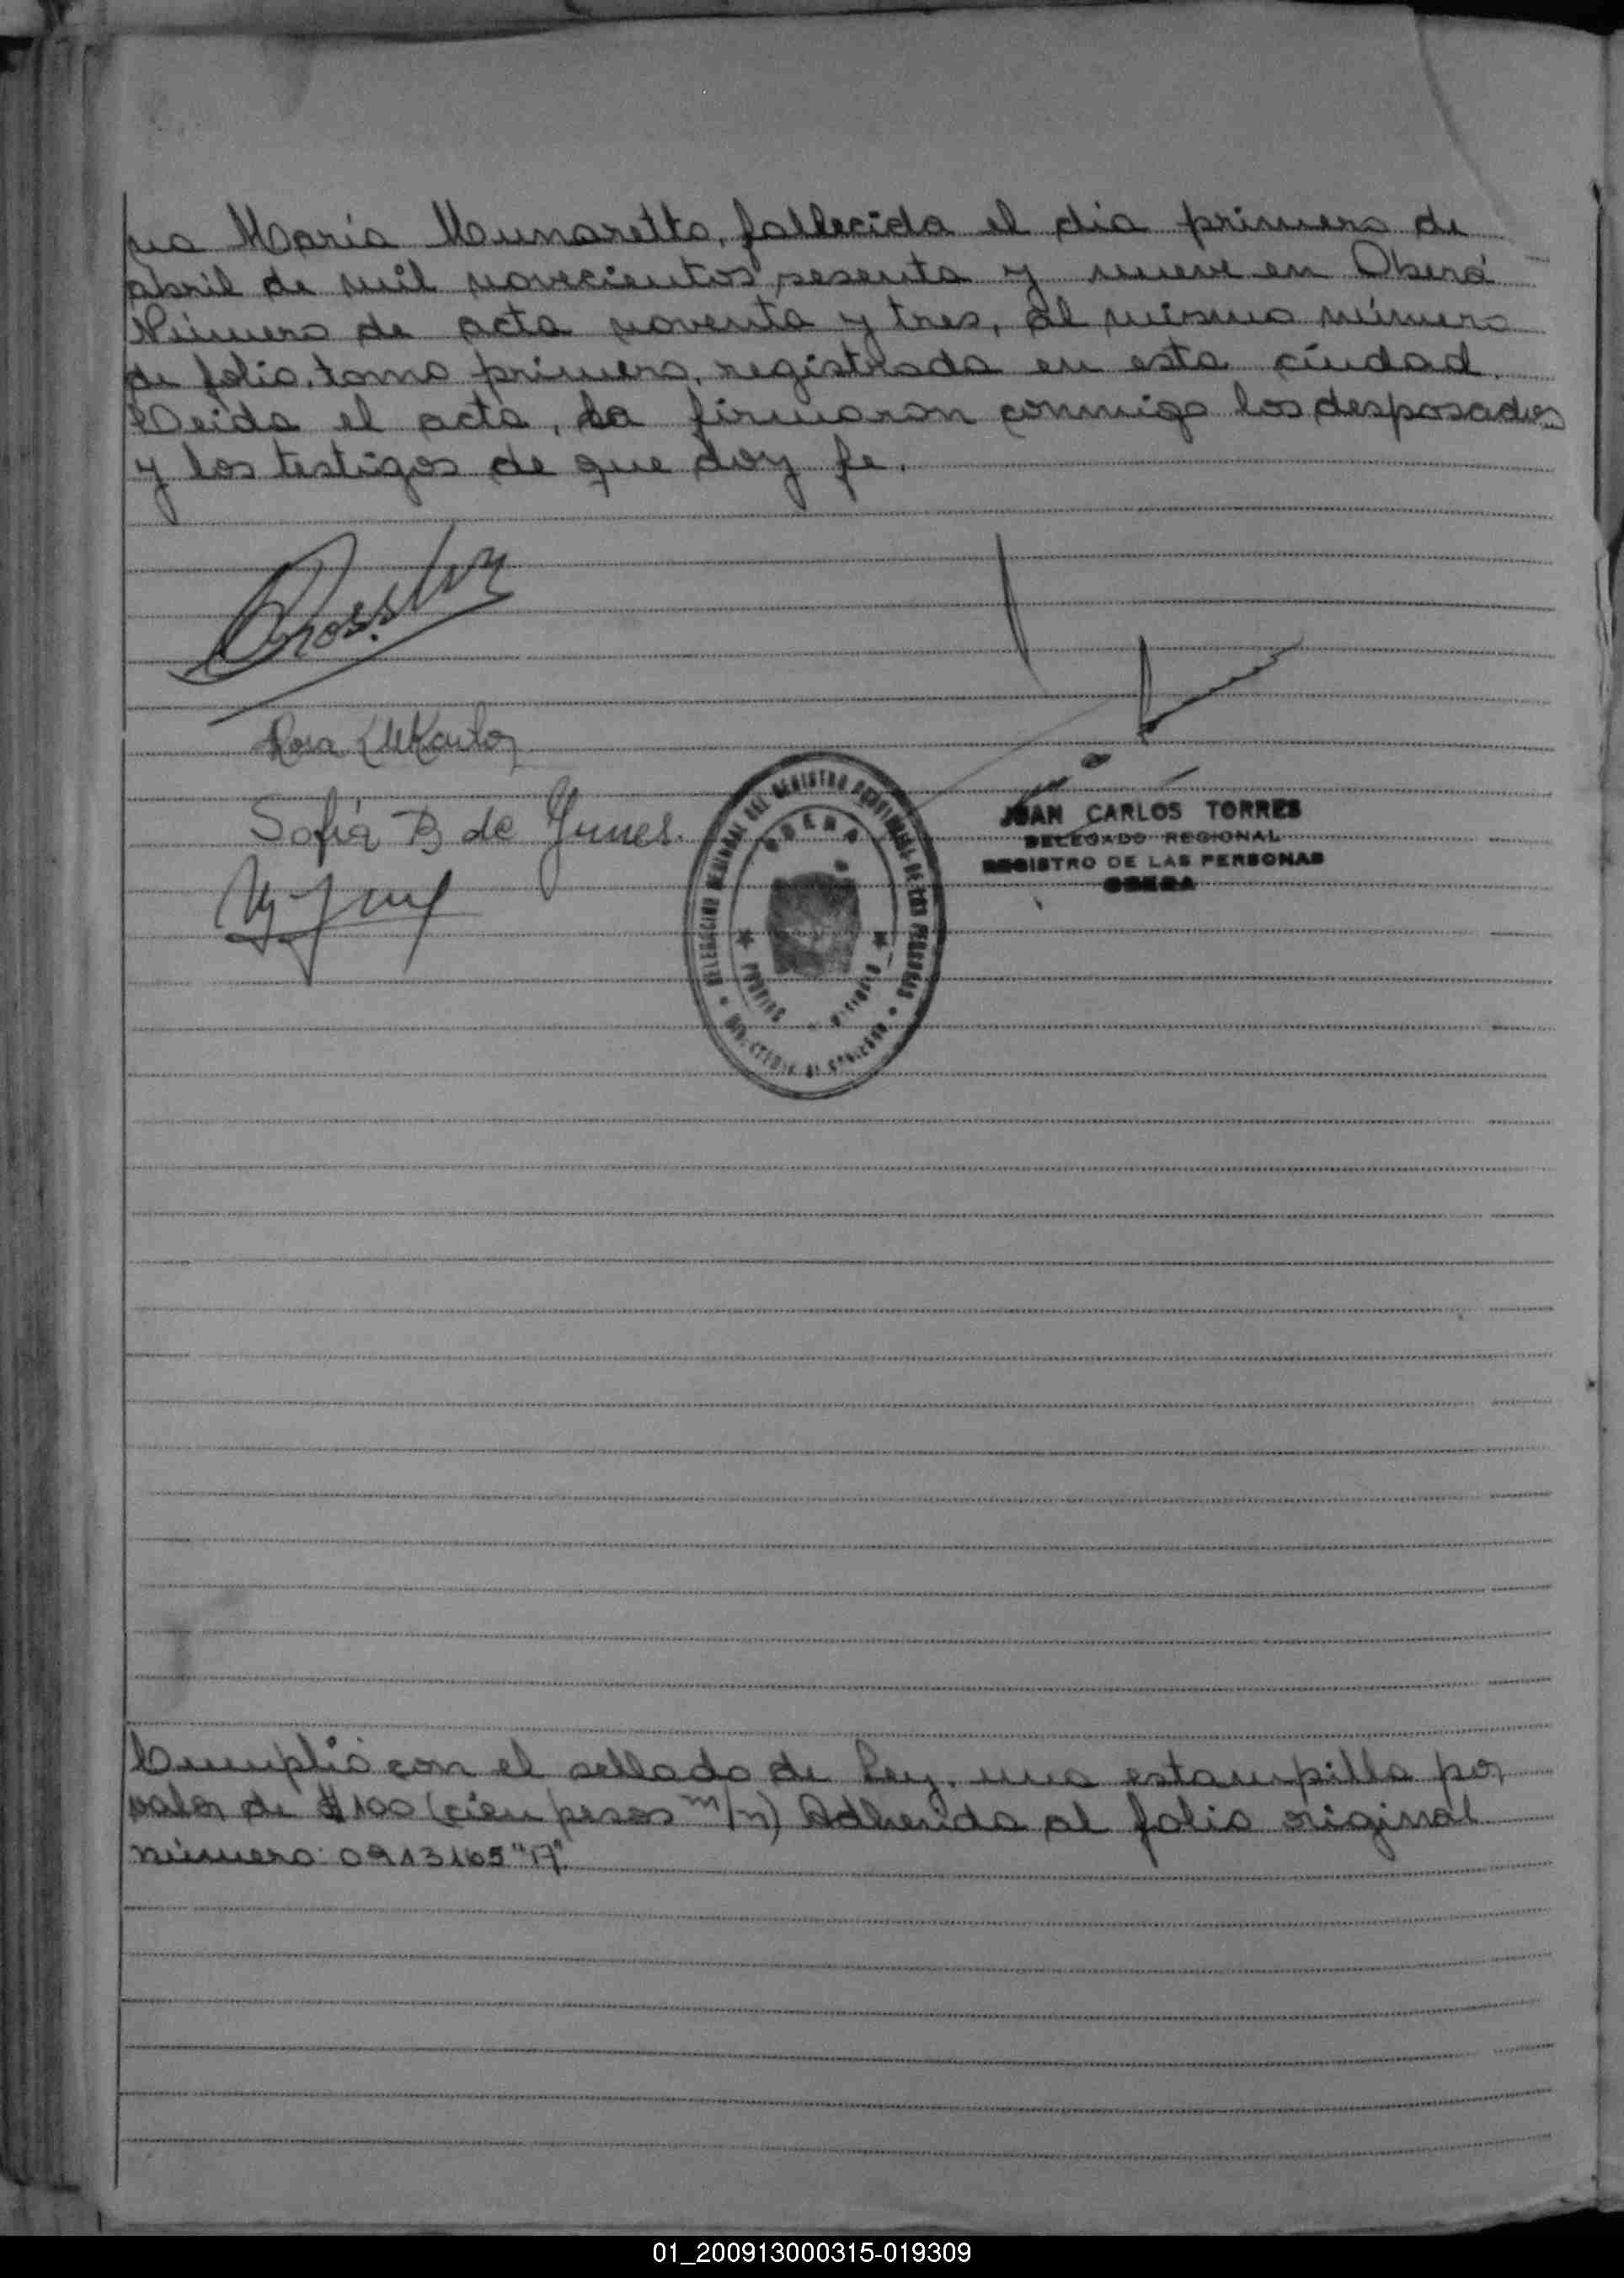 na María Munaretto, fallecida el día primero de
abril de mil novecientos sesenta y nueve en Oberá
Número de acta noventa y tres, al mismo número
de folio, tomo primero, registrada en esta ciudad.
Leida el acta, la firmaron conmigo los desposados
y los testigos de que doy fe.
Rosa
Sofía B de Yunes.
JUAN CARLOS TORRES
DELEGADO REGIONAL
REGISTRO DE LAS PERSONAS
OBERA
DELEGACION REGIONAL DEL REGISTRO PROVINCIAL DE LAS PERSONAS
OBERA
Cumplió con el sellado de Ley, una estampilla por
valor de $ 100 (cien pesos m/n) Adherida al folio original
número: 0913165 "A"
01_200913000315-019309